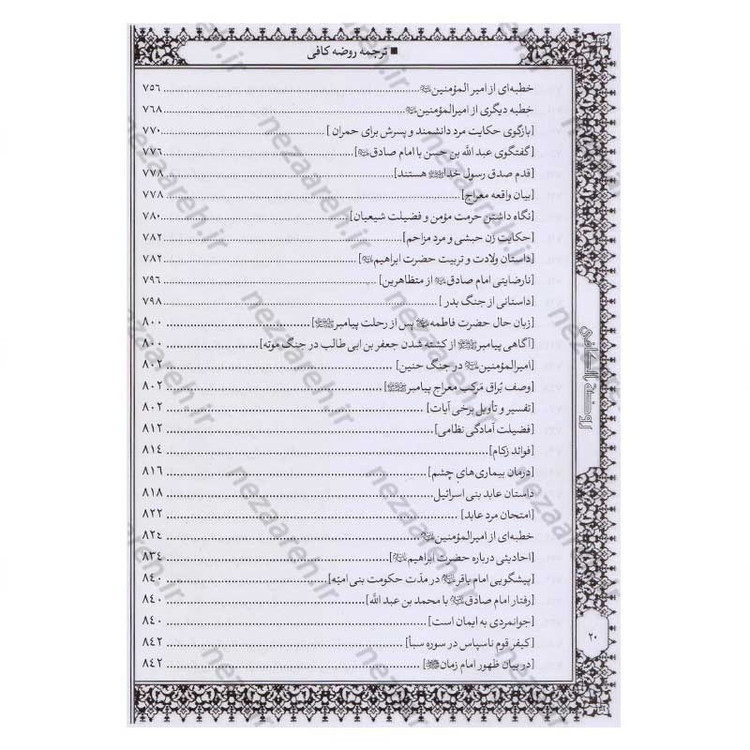 ■ ترجمه روضه کافی
خطبه‌ای از امیر المؤمنین ............ ۷۵۶
خطبه دیگری از امیرالمؤمنین ............ ۷۶۸
[بازگوی حکایت مرد دانشمند و پسرش برای حمران] ............ ۷۷۰
[گفتگوی عبد الله بن حسن با امام صادق] ............ ۷۷۶
[قدم صدق رسول خدا هستند] ............ ۷۷۸
[بیان واقعه معراج] ............ ۷۷۸
[نگاه داشتن حرمت مؤمن و فضیلت شیعیان] ............ ۷۸۰
[حکایت زن حبشی و مرد مزاحم] ............ ۷۸۲
[داستان ولادت و تربیت حضرت ابراهیم] ............ ۷۸۲
[نارضایتی امام صادق از متظاهرین] ............ ۷۹۶
[داستانی از جنگ بدر] ............ ۷۹۸
[زبان حال حضرت فاطمه پس از رحلت پیامبر] ............ ۸۰۰
[آگاهی پیامبر از کشته شدن جعفر بن ابی طالب در جنگ موته] ............ ۸۰۰
[امیرالمؤمنین در جنگ حنین] ............ ۸۰۲
[وصف بُراق مَرکب معراج پیامبر] ............ ۸۰۲
[تفسیر و تأویل برخی آیات] ............ ۸۰۲
[فضیلت آمادگی نظامی] ............ ۸۱۲
[فوائد زکام] ............ ۸۱۴
[درمان بیماری‌های چشم] ............ ۸۱۶
داستان عابد بنی اسرائیل ............ ۸۱۸
[امتحان مرد عابد] ............ ۸۲۲
خطبه‌ای از امیرالمؤمنین ............ ۸۲٤
[احادیثی درباره حضرت ابراهیم] ............ ۸۳٤
[پیشگویی امام باقر در مدّت حکومت بنی امیّه] ............ ۸٤۰
[رفتار امام صادق با محمد بن عبد الله] ............ ۸٤۰
[جوانمردی به ایمان است] ............ ۸٤۰
[کیفر قوم ناسپاس در سوره سبأ] ............ ۸٤۲
[در بیان ظهور امام زمان] ............ ۸٤۲
روضة الکافی
۲۰
nezaareh.ir